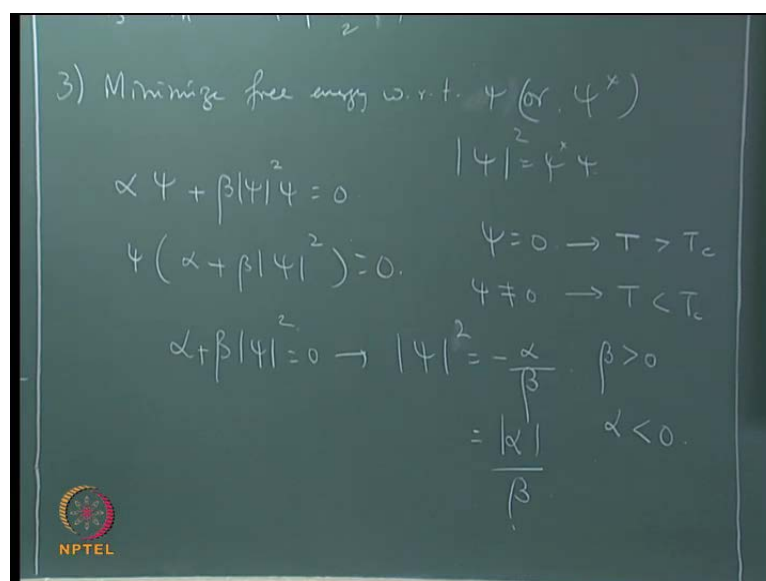 3) Minimize free energy w.r.t. ψ (or ψ*)
|ψ|² = ψ*ψ
αψ + β|ψ|²ψ = 0
ψ = 0 → T > Tc
ψ(α + β|ψ|²) = 0.
ψ ≠ 0 → T < Tc
α + β|ψ|² = 0 → |ψ|² = -α/β. β > 0
= |α|/β α < 0.
NPTEL